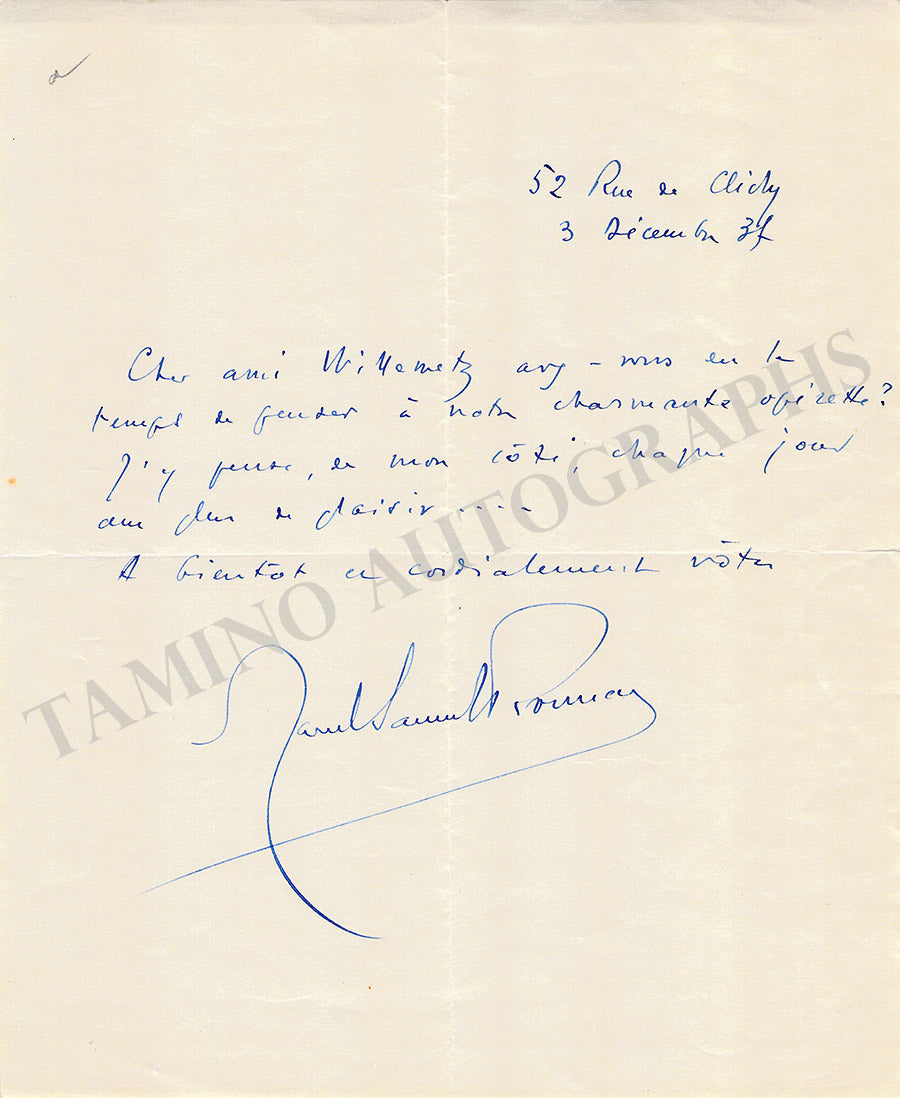 52 Rue de Clichy
3 Décembre
Cher ami Willemetz avez-vous eu le
temps de penser à notre charmante opérette?
J'y pense, de mon côté, chaque jour
avec plus de plaisir ....
A bientôt et cordialement vôtre
Marcel Samuel Rousseau
TAMINO AUTOGRAPHS